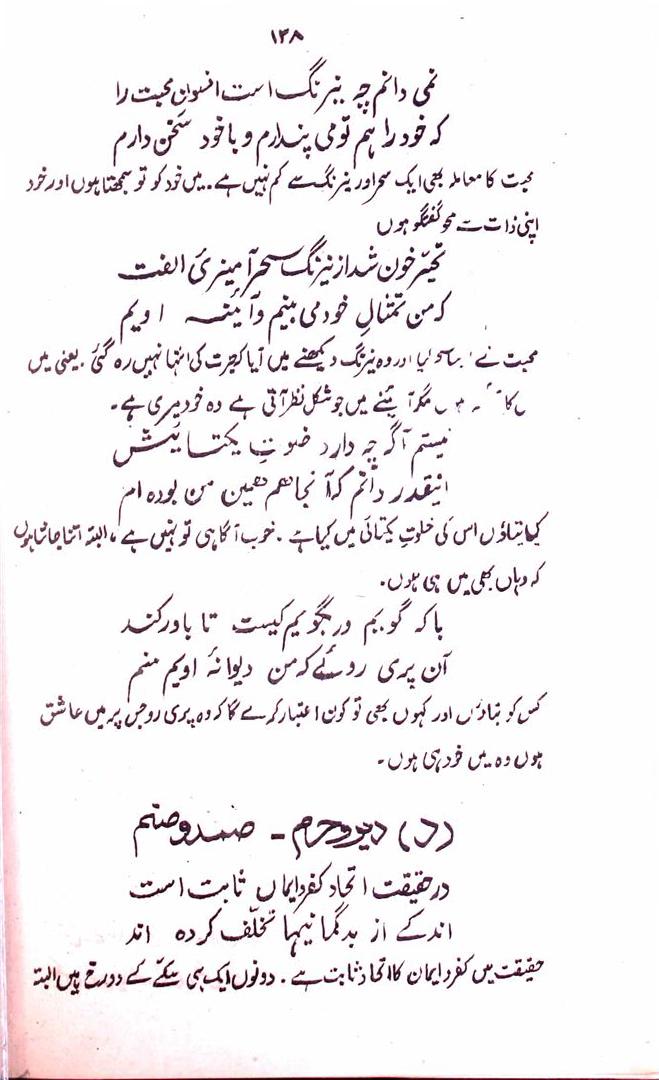 ۱۳۸
نمی دانم چہ نیرنگ است افسونِ محبت را
کہ خود را ہم تو می پندارم و با خود سخن دارم
محبت کا معاملہ بھی ایک سحر اور نیرنگ سے کم نہیں ہے۔ میں خود کو تو سمجھتا ہوں اور خود
اپنی ذات سے محو گفتگو ہوں
تحیّر خون شد از نیرنگ سحر آمیزیٔ الفت
کہ من تمثالِ خود می بینم و آئینہ اویم
محبت نے اور وہ نیرنگ دیکھنے میں آیا کہ حیرت کی انتہا نہیں رہ گئی۔ یعنی میں
کا مگر آئینے میں جو شکل نظر آتی ہے وہ خود میری ہے۔
نیستم آگہ چہ دارد خلوتِ یکتائیش
اینقدر دانم کہ آنجا ہم ہمین من بودہ ام
کیا بتاؤں اس کی خلوتِ یکتائی میں کیا ہے۔ خوب آگاہی تو نہیں ہے، البتہ اتنا جانتا ہوں
کہ وہاں بھی میں ہی ہوں۔
با کہ گویم ور بگویم کیست تا باور کند
آن پری روئے کہ من دیوانۂ اویم منم
کس کو بتاؤں اور کہوں بھی تو کون اعتبار کرے گا کہ وہ پری رو جس پر میں عاشق
ہوں وہ میں خود ہی ہوں۔
(د) دیر و حرم - صمد و صنم
در حقیقت اتحاد کفر و ایماں ثابت است
اندکے از بدگمانیہا تخلّف کردہ اند
حقیقت میں کفر و ایمان کا اتحاد ثابت ہے۔ دونوں ایک ہی سکّے کے دو رخ ہیں البتہ